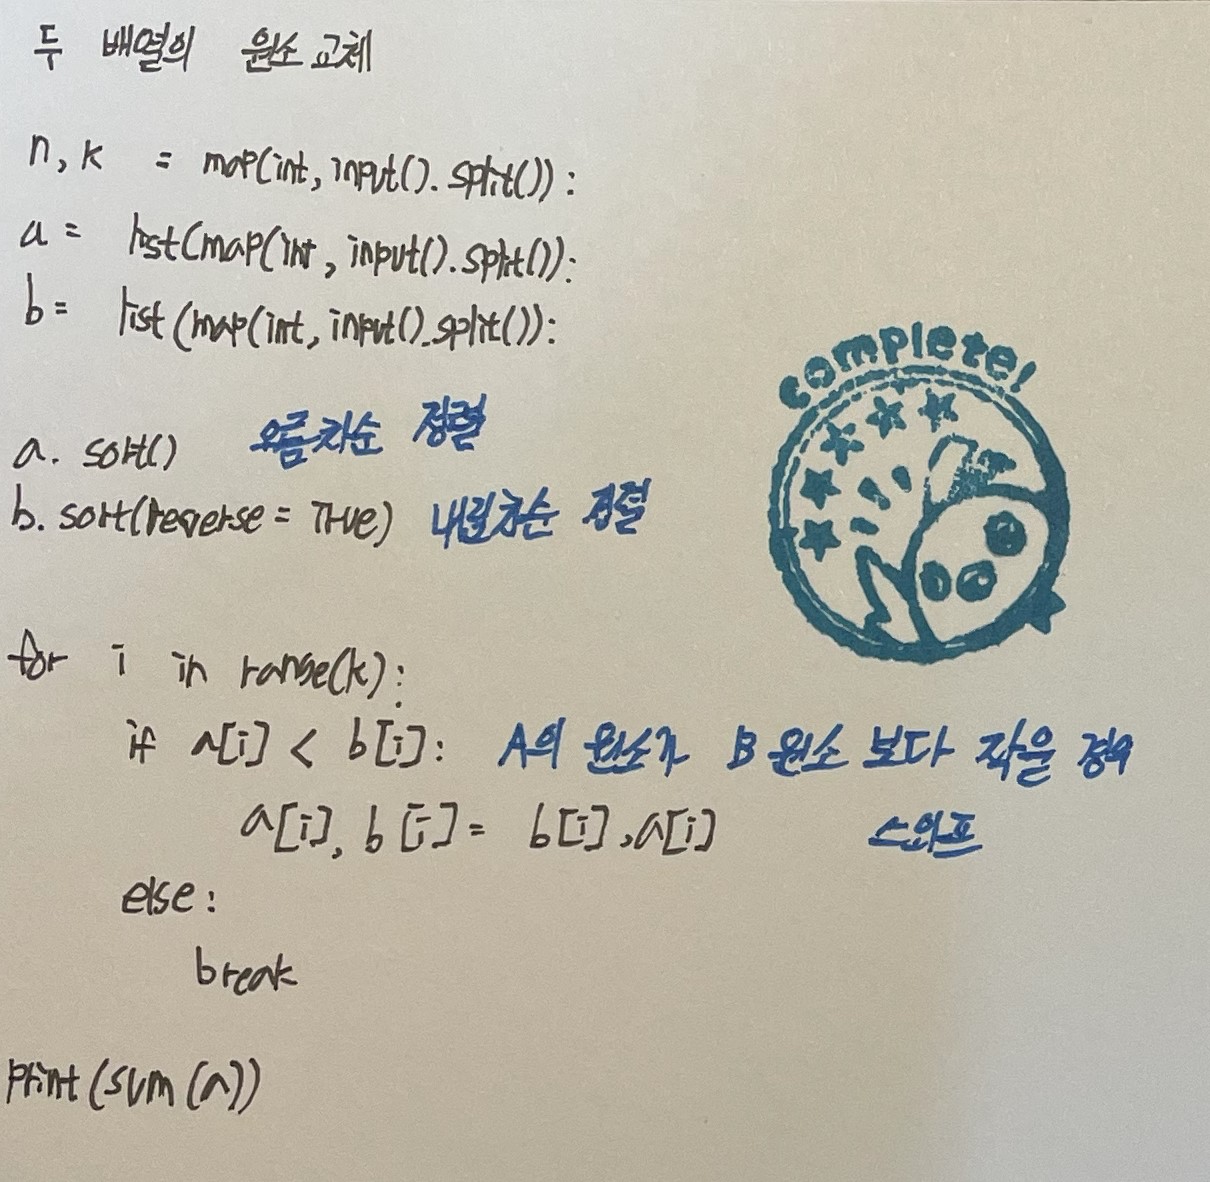 두 배열의 원소 교체
n, k = map(int, input().split()):
a = list(map(int, input().split()):
b = list(map(int, input().split()):
a. sort() 오름차순 정렬
b. sort(reverse = True) 내림차순 정렬
for i in range(k):
if a[i] < b[i]: A의 원소가 B 원소 보다 작을 경우
a[i], b[i] = b[i], a[i] 스와프
else:
break
print(sum(a))
complete!